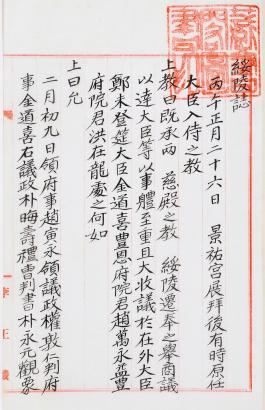 綏陵誌
丙午正月二十六日 景祐宮展拜後有時原任
大臣入侍之敎
上敎曰旣承兩 慈殿之敎 綏陵遷奉之擧商議
以達大臣等以事體至重且大收議於在外大臣
鄭未登筵大臣金道喜豊恩府院君趙萬永益豊
府院君洪在龍處之何如
上曰允
二月初九日領府事趙寅永領議政權敦仁判府
事金道喜右議政朴晦壽禮曹判書朴永元觀象